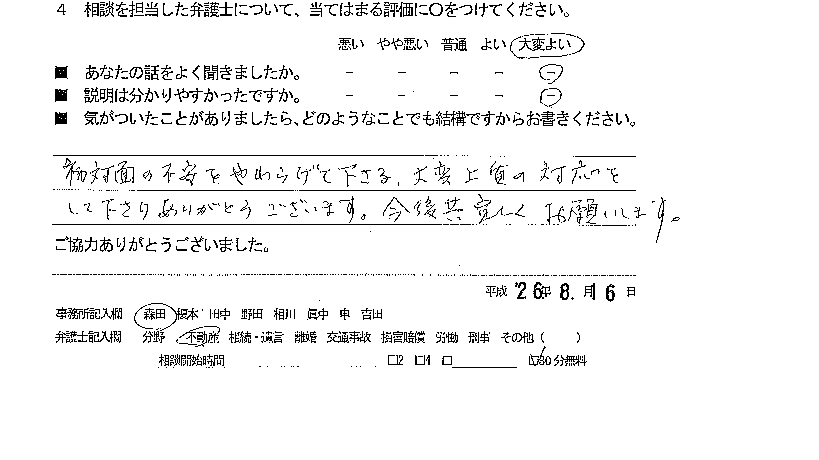 4 相談を担当した弁護士について、当てはまる評価に〇をつけてください。
悪い やや悪い 普通 よい 大変よい
■ あなたの話をよく聞きましたか。 － － － － －
■ 説明は分かりやすかったですか。 － － － － －
■ 気がついたことがありましたら、どのようなことでも結構ですからお書きください。
初対面の不安をやわらげて下さる、大変上質の対応を
して下さりありがとうございます。今後共宜しくお願いします。
ご協力ありがとうございました。
平成 26年 8.月 16日
事務所記入欄 森田 榎本 田中 野田 相川 眞中 申 吉田
弁護士記入欄 分野 不動産 相続・遺言 離婚 交通事故 損害賠償 労働 刑事 その他（ ）
相談開始時間 □2 □4 □ □30分無料